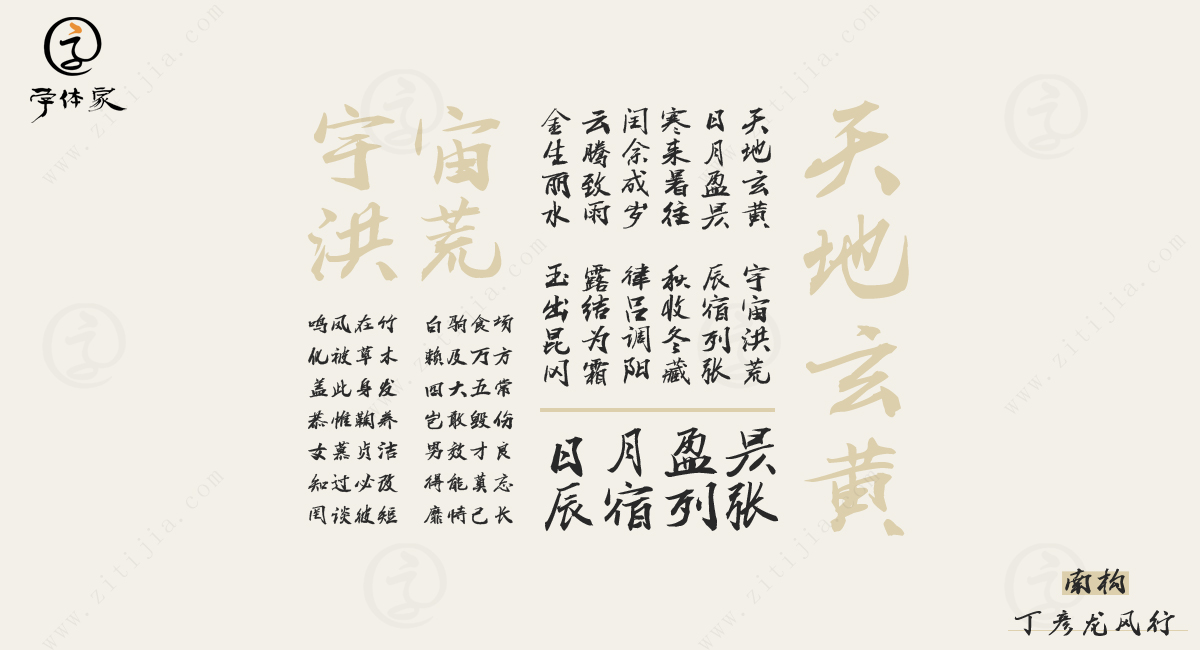 字体家
宇宙
洪荒
鸣凤在竹 白驹食场
化被草木 赖及万方
盖此身发 四大五常
恭惟鞠养 岂敢毁伤
女慕贞洁 男效才良
知过必改 得能莫忘
罔谈彼短 靡恃己长
天地玄黄
日月盈昃
寒来暑往
闰余成岁
云腾致雨
金生丽水
宇宙洪荒
辰宿列张
秋收冬藏
律吕调阳
露结为霜
玉出昆冈
日月盈昃
辰宿列张
天地玄黄
南构
丁彦龙风行
www.zitijia.com